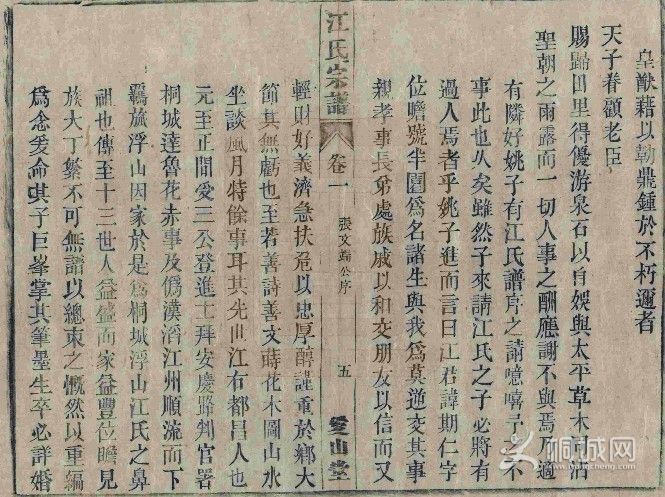 皇猷藉以勒鼎鍾於不朽邇者
天子眷顧老臣
賜歸田里得優游泉石以自娛與太平草木同沾
聖朝之雨露而一切人事之酬應謝不與焉乃適
有隣好姚子有江氏譜序之請噫嘻予不
事此也久矣雖然子來請江氏之子必將有
過人焉者乎姚子進而言曰江君諱期仁字
位瞻號半園爲名諸生與我爲莫逆交其事
親孝事長弟處族戚以和交朋友以信而又
江氏宗譜
卷一
張文端公序
五
愛山堂
輕財好義濟急扶危以忠厚醇謹重於鄉大
節其無虧也至若善詩善文蒔花木圖山水
坐談風月特餘事耳其先世江右都昌人也
元至正間愛三公登進士拜安慶路判官署
桐城達魯花赤事及僞漢滔江州順流而下
羈旅浮山因家於是爲桐城浮山江氏之鼻
祖也傳至十三世人益盛而家益豐位瞻見
族大丁繁不可無譜以總束之慨然以重編
爲念爰命其子巨峯掌其筆墨生卒必詳婚
桐城网
tongcheng.com